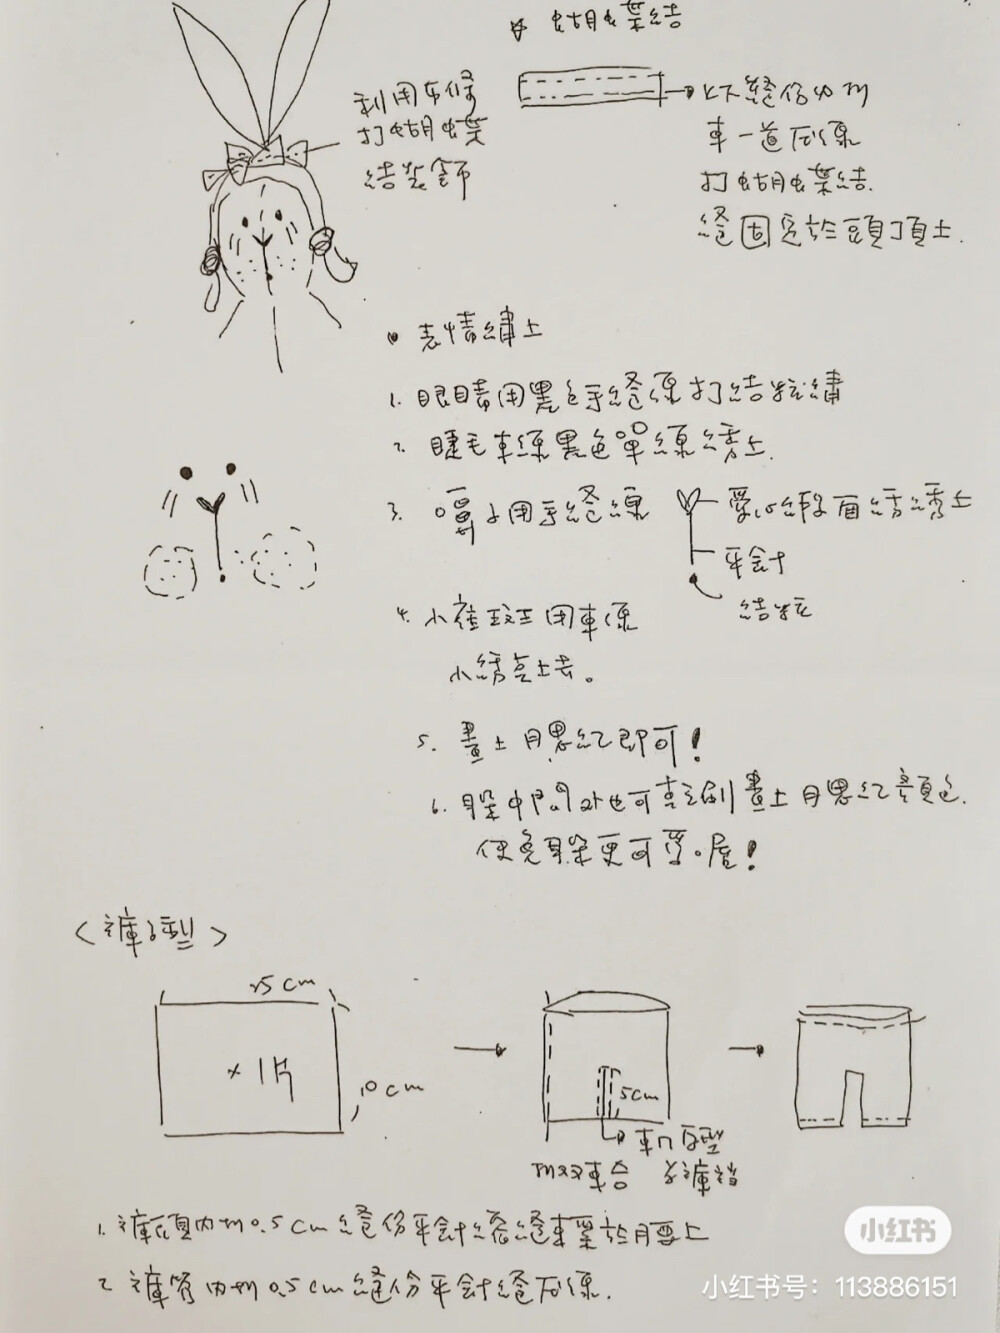 蝴蝶結
利用布條
打蝴蝶
結裝飾
上下縫份內折
車一道壓線
打蝴蝶結.
縫固定於頭頂上.
表情繡上
1. 眼睛用黑色手縫線打結粒繡
2. 睫毛車線黑色單線繡上.
3. 嘴用手縫線
愛心緞面繡上
平針
結粒
4. 小雀斑用車線
小繡點上去。
5. 畫上腮紅即可!
6. 耳朵中間也可畫上腮紅顏色.
使兔耳朵更可愛喔!
<褲子型>
25cm
×1片
10cm
5cm
車ㄇ字型
兩双車合 為褲襠
1. 褲頭內折0.5cm縫份平針縮縫束緊於腰上
2. 褲管內折0.5cm縫份平針縫壓線.
小红书
小红书号：113886151